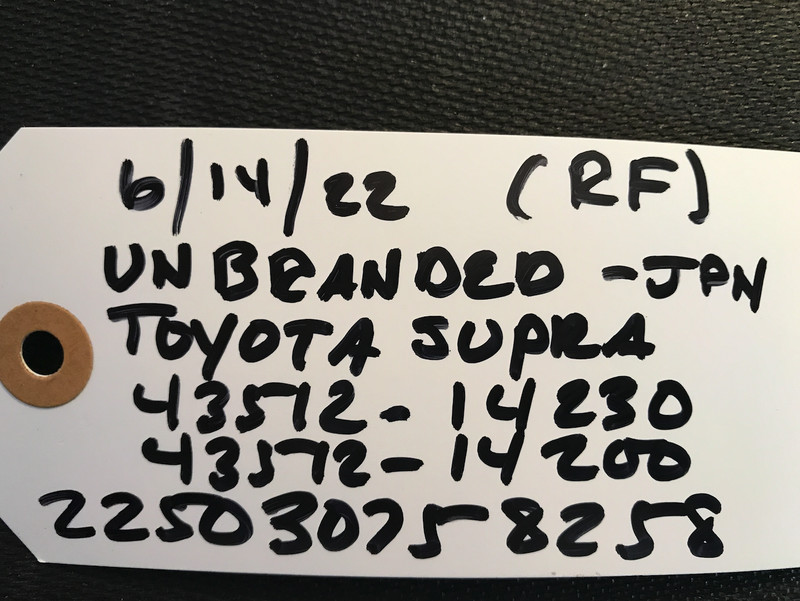 6/14/22 (RF)
UNBRANDED - JPN
TOYOTA SUPRA
43512-14230
43512-14200
225030758258